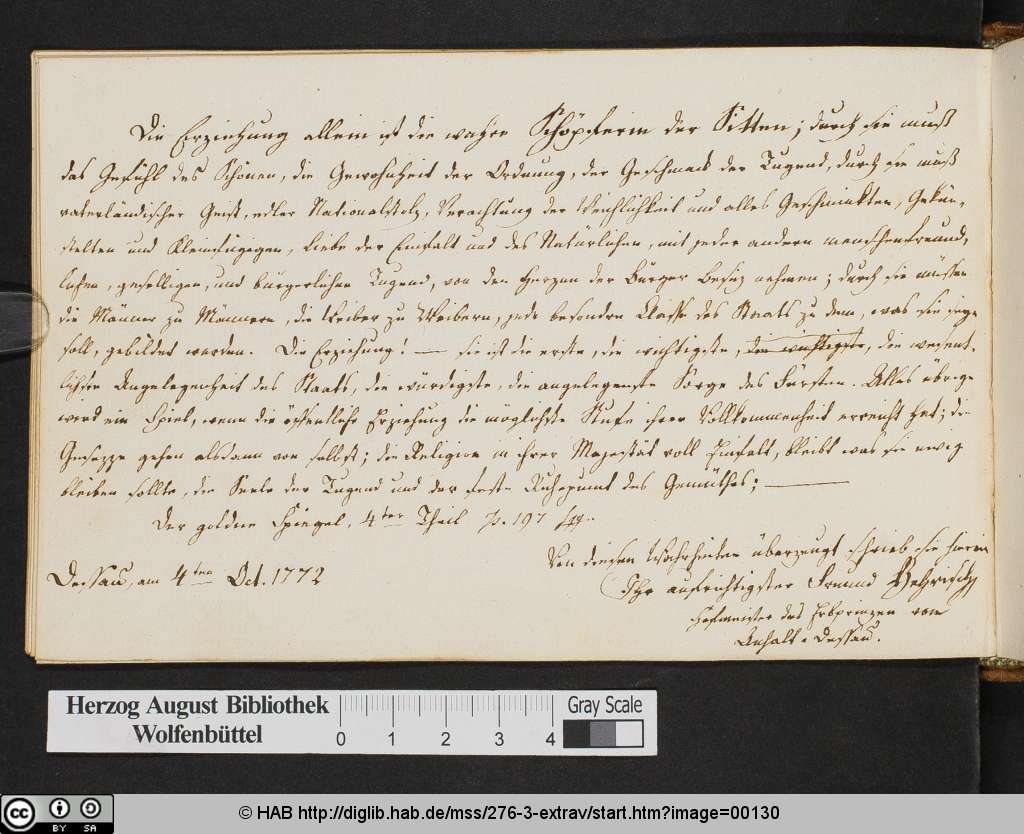 Die Erziehung allein ist die wahre Schöpferin der Sitten; durch sie muß
das Gefühl des Schönen, die Gewohnheit der Ordnung, der Geschmack der Tugend, durch sie muß
vaterländischer Geist, edler Nationalstolz, Verachtung der Weichlichkeit und alles Geschminkten, Gekün-
stelten und Kleinfügigen, Liebe der Einfalt und des Natürlichen, mit jeder andern menschenfreund,
lichen, geselligen, und bürgerlichen Tugend, von den Herzen der Bürger Besiz nehmen; durch sie müssen
die Männer zu Männern, die Weiber zu Weibern, jede besondre Classe des Staats zu dem, was sie seyn
soll, gebildet werden. Die Erziehung! — sie ist die erste, die wichtigste, die wichtigste, die wesent,
lichste Angelegenheit des Staats, die würdigste, die angelegenste Sorge des Fürsten. Alles übrige
wird ein Spiel, wenn die öffentliche Erziehung die möglichste Stufe ihrer Vollkommenheit erreicht hat; die
Gesezze gehen alsdann von selbst; die Religion in ihrer Majestät voll Einfalt, bleibt was sie ewig
bleiben sollte, die Seele der Tugend und der feste Ruhepunct des Gemüthes; —
Der goldne Spiegel, 4ter Theil p. 197 sqq.
Von diesen Wahrheiten überzeugt schrieb sie hierin
Dessau, am 4ten Oct. 1772
Ihr aufrichtigster Freund Behrisch
Hofmeister des Erbprinzen von
Anhalt-Dessau.
Herzog August Bibliothek
Wolfenbüttel
0 1 2 3 4
Gray Scale
cc BY SA © HAB http://diglib.hab.de/mss/276-3-extrav/start.htm?image=00130